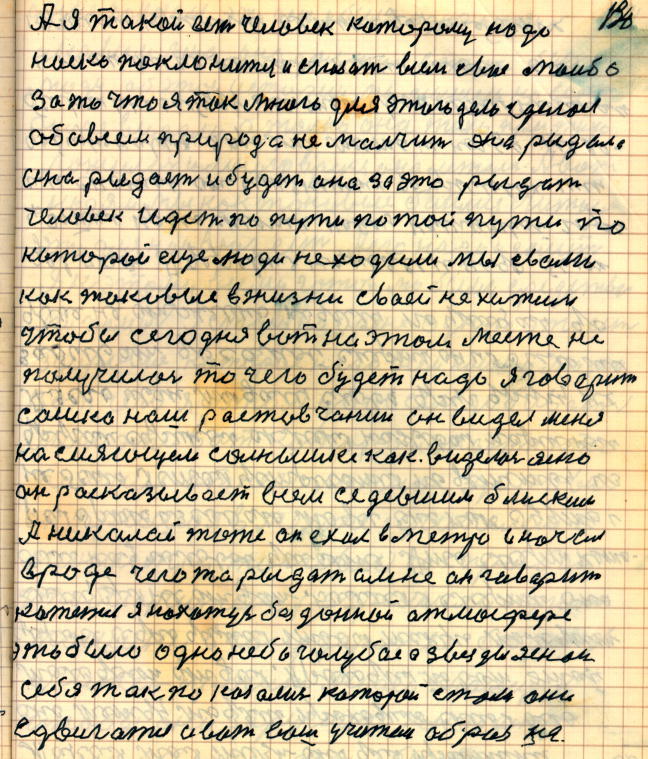 А я такой ест человек которому надо
ниско поклонитця и сказат всем свое спасибо
за то что я так много для этого дела сделал
обо всем природа не малчит она рыдала
она рыдает и будет она за это рыдат
человек идет по пути по той пути по
которой еще люди не ходили мы с вами
как таковые в жизни своей не хотим
чтобы сегодня вот на этом месте не
получилос то чего будет надо я говорит
сашка наш растовчанин он видел меня
на сияющем солнышке как виделос ясно
он расказывает всем седевшим блиским
А николай тоже он ехал в метро и начел
вроде чегота рыдат а мне он гаварит
кажетця я нахожус без донной атмосфере
это было одно небо голубое а звезды
себя так показали которой стали они
сдвигатця а вот ваш учител образ на.